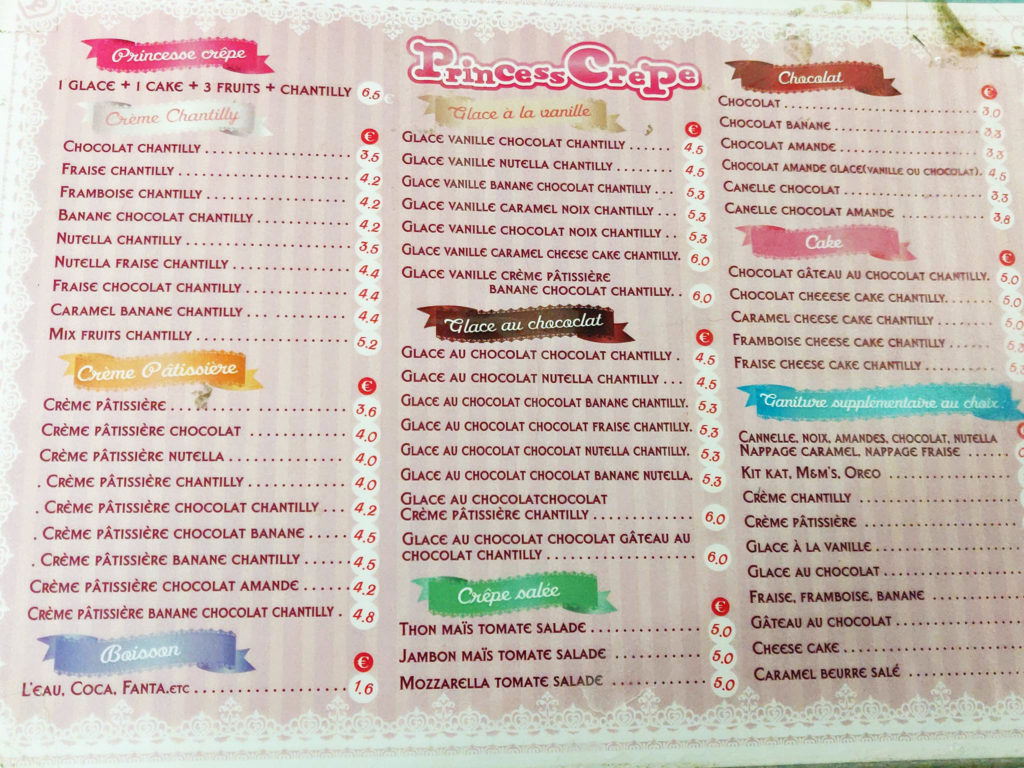 Princesse crêpe
1 GLACE + 1 CAKE + 3 FRUITS + CHANTILLY 6.5€
Crème Chantilly
€
CHOCOLAT CHANTILLY .................... 3.5
FRAISE CHANTILLY .................... 4.2
FRAMBOISE CHANTILLY .................... 4.2
BANANE CHOCOLAT CHANTILLY ............ 4.2
NUTELLA CHANTILLY .................... 3.5
NUTELLA FRAISE CHANTILLY ............ 4.4
FRAISE CHOCOLAT CHANTILLY ............ 4.4
CARAMEL BANANE CHANTILLY ............ 4.4
MIX FRUITS CHANTILLY .................... 5.2
Crème Pâtissière
€
CRÈME PÂTISSIÈRE .................... 3.6
CRÈME PÂTISSIÈRE CHOCOLAT ............ 4.0
CRÈME PÂTISSIÈRE NUTELLA ............ 4.0
. CRÈME PÂTISSIÈRE CHANTILLY ............ 4.0
. CRÈME PÂTISSIÈRE CHOCOLAT CHANTILLY ... 4.2
. CRÈME PÂTISSIÈRE CHOCOLAT BANANE ..... 4.5
. CRÈME PÂTISSIÈRE BANANE CHANTILLY ..... 4.5
CRÈME PÂTISSIÈRE CHOCOLAT AMANDE ...... 4.2
CRÈME PÂTISSIÈRE BANANE CHOCOLAT CHANTILLY . 4.8
Boisson
€
L'EAU, COCA, FANTA.ETC .................... 1.6
PrincessCrepe
Glace à la vanille
€
GLACE VANILLE CHOCOLAT CHANTILLY ...... 4.5
GLACE VANILLE NUTELLA CHANTILLY ....... 4.5
GLACE VANILLE BANANE CHOCOLAT CHANTILLY ... 5.3
GLACE VANILLE CARAMEL NOIX CHANTILLY ... 5.3
GLACE VANILLE CHOCOLAT NOIX CHANTILLY .. 5.3
GLACE VANILLE CARAMEL CHEESE CAKE CHANTILLY. 6.0
GLACE VANILLE CRÈME PÂTISSIÈRE
BANANE CHOCOLAT CHANTILLY. . 6.0
Glace au chococlat
€
GLACE AU CHOCOLAT CHOCOLAT CHANTILLY . 4.5
GLACE AU CHOCOLAT NUTELLA CHANTILLY ... 4.5
GLACE AU CHOCOLAT CHOCOLAT BANANE CHANTILLY. 5.3
GLACE AU CHOCOLAT CHOCOLAT FRAISE CHANTILLY. 5.3
GLACE AU CHOCOLAT CHOCOLAT NUTELLA CHANTILLY. 5.3
GLACE AU CHOCOLAT CHOCOLAT BANANE NUTELLA. 5.3
GLACE AU CHOCOLATCHOCOLAT
CRÈME PÂTISSIÈRE CHANTILLY ............ 6.0
GLACE AU CHOCOLAT CHOCOLAT GÂTEAU AU
CHOCOLAT CHANTILLY .................... 6.0
Crêpe salée
€
THON MAÏS TOMATE SALADE ............ 5.0
JAMBON MAÏS TOMATE SALADE ............ 5.0
MOZZARELLA TOMATE SALADE ............ 5.0
Chocolat
€
CHOCOLAT .................... 3.0
CHOCOLAT BANANE .................... 3.3
CHOCOLAT AMANDE .................... 3.3
CHOCOLAT AMANDE GLACE(VANILLE OU CHOCOLAT). 4.5
CANELLE CHOCOLAT .................... 3.3
CANELLE CHOCOLAT AMANDE ............ 3.8
Cake
€
CHOCOLAT GÂTEAU AU CHOCOLAT CHANTILLY. 5.0
CHOCOLAT CHEEESE CAKE CHANTILLY....... 5.0
CARAMEL CHEESE CAKE CHANTILLY ........
FRAMBOISE CHEESE CAKE CHANTILLY ......
FRAISE CHEESE CAKE CHANTILLY ..........
Ganiture supplementaire au choix
CANNELLE, NOIX, AMANDES, CHOCOLAT, NUTELLA
NAPPAGE CARAMEL, NAPPAGE FRAISE ......
KIT KAT, M&M'S, OREO ....................
CRÈME CHANTILLY ....................
CRÈME PÂTISSIÈRE ....................
GLACE À LA VANILLE ....................
GLACE AU CHOCOLAT ....................
FRAISE, FRAMBOISE, BANANE ............
GÂTEAU AU CHOCOLAT ....................
CHEESE CAKE ....................
CARAMEL BEURRE SALÉ ....................